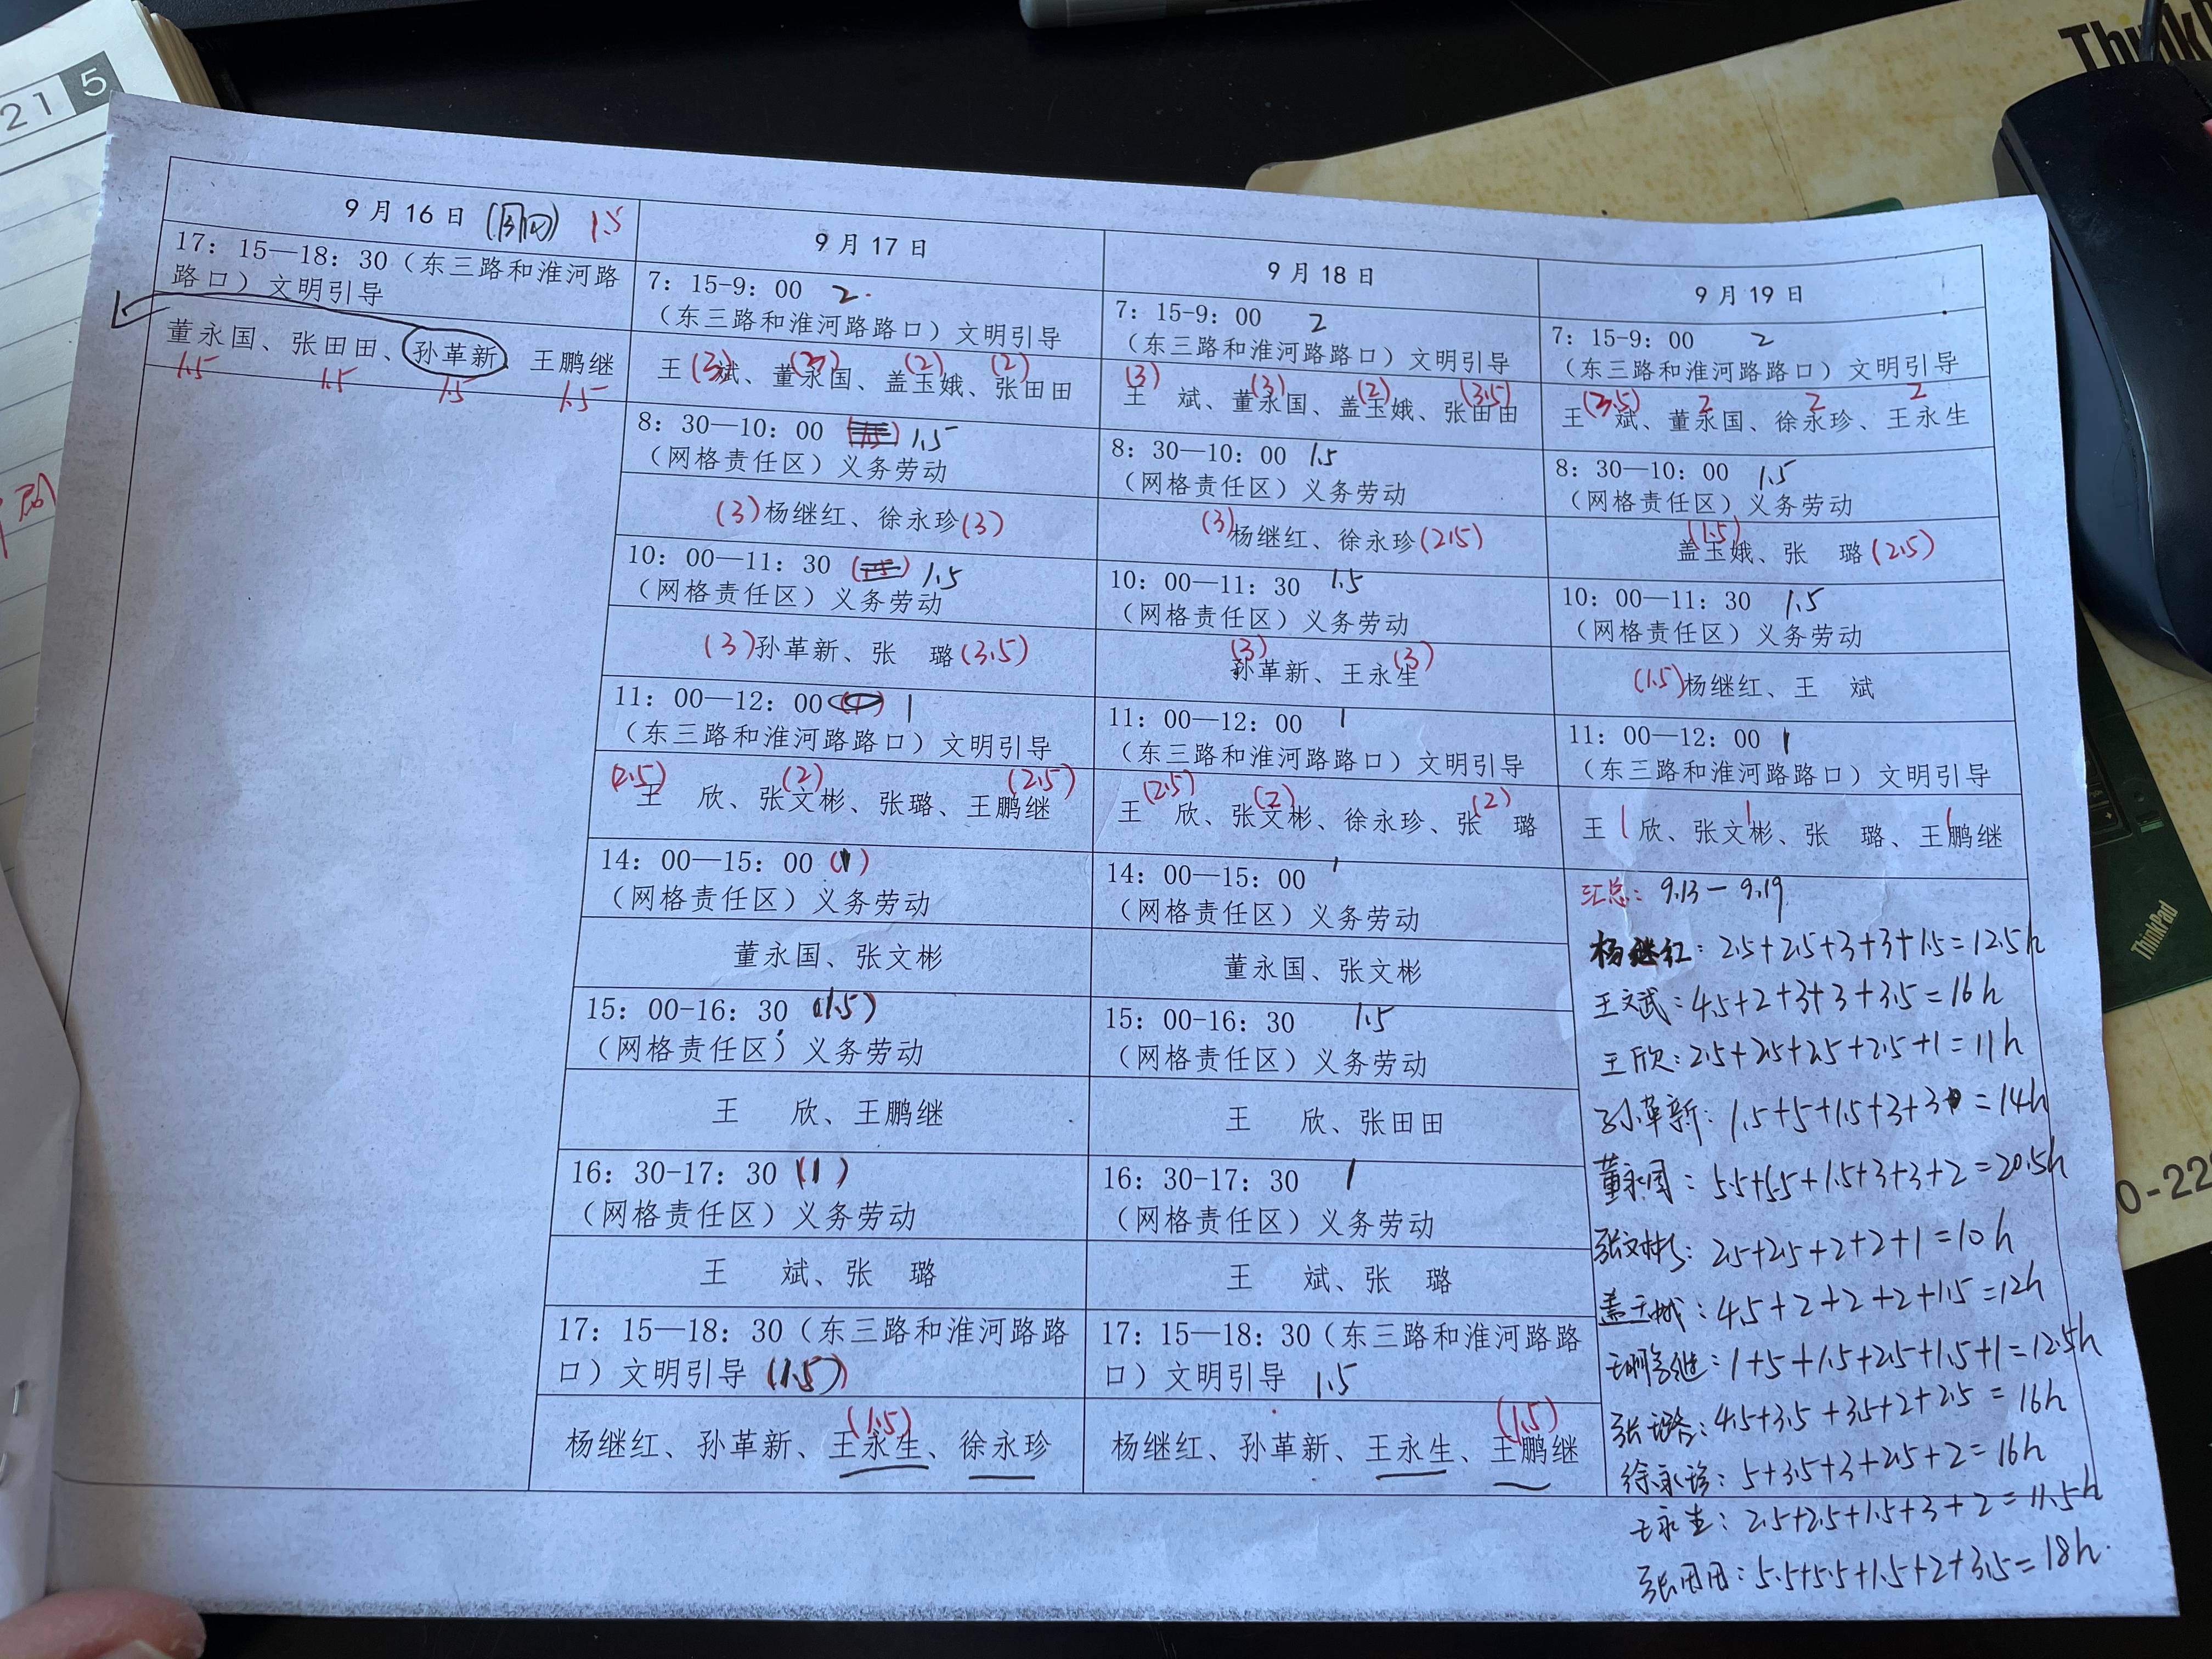 21 5
ThinkPad
9月16日 (周四) 1.5
17：15—18：30（东三路和淮河路
路口）文明引导
董永国、张田田、孙革新、王鹏继
1.5 1.5 1.5 1.5
9月17日
7：15-9：00 2.
（东三路和淮河路路口）文明引导
王(3)斌、董永国、盖玉娥(2)、张田田(2)
8：30—10：00 1.5
（网格责任区）义务劳动
(3)杨继红、徐永珍(3)
10：00—11：30 1.5
（网格责任区）义务劳动
(3)孙革新、张 璐(3.5)
11：00—12：00 1
（东三路和淮河路路口）文明引导
(2.5) (2) (2.5)
王 欣、张文彬、张璐、王鹏继
14：00—15：00 (1)
（网格责任区）义务劳动
董永国、张文彬
15：00-16：30 (1.5)
（网格责任区）义务劳动
王 欣、王鹏继
16：30-17：30 (1)
（网格责任区）义务劳动
王 斌、张 璐
17：15—18：30（东三路和淮河路路
口）文明引导 (1.5)
(1.5)
杨继红、孙革新、王永生、徐永珍
9月18日
7：15-9：00 2
（东三路和淮河路路口）文明引导
(3) (3) (2) (3.5)
王 斌、董永国、盖玉娥、张田田
8：30—10：00 1.5
（网格责任区）义务劳动
(3)杨继红、徐永珍(2.5)
10：00—11：30 1.5
（网格责任区）义务劳动
(3) (3)
孙革新、王永生
11：00—12：00 1
（东三路和淮河路路口）文明引导
(2.5) (2) (2)
王 欣、张文彬、徐永珍、张 璐
14：00—15：00 1
（网格责任区）义务劳动
董永国、张文彬
15：00-16：30 1.5
（网格责任区）义务劳动
王 欣、张田田
16：30-17：30 1
（网格责任区）义务劳动
王 斌、张 璐
17：15—18：30（东三路和淮河路路
口）文明引导 1.5
(1.5)
杨继红、孙革新、王永生、王鹏继
9月19日
7：15-9：00 2
（东三路和淮河路路口）文明引导
(3.5) 2 2 2
王 斌、董永国、徐永珍、王永生
8：30—10：00 1.5
（网格责任区）义务劳动
(1.5)
盖玉娥、张 璐(2.5)
10：00—11：30 1.5
（网格责任区）义务劳动
(1.5)杨继红、王 斌
11：00—12：00 1
（东三路和淮河路路口）文明引导
1 1 1
王 欣、张文彬、张 璐、王鹏继
汇总：9.13—9.19
杨继红：2.5+2.5+3+3+1.5=12.5h
王文武：4.5+2+3+3+3.5=16h
王欣：2.5+2.5+2.5+2.5+1=11h
孙革新：1.5+5+1.5+3+3=14h
董永国：5.5+5.5+1.5+3+3+2=20.5h
张文彬：2.5+2.5+2+2+1=10h
盖玉娥：4.5+2+2+2+1.5=12h
王鹏继：1+5+1.5+2.5+1.5+1=12.5h
张璐：4.5+3.5+3.5+2+2.5=16h
徐永珍：5+3.5+3+2.5+2=16h
王永生：2.5+2.5+1.5+3+2=11.5h
张田田：5.5+5.5+1.5+2+3.5=18h.
ThinkPad